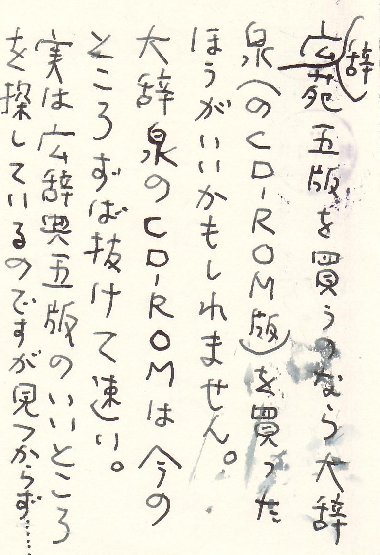 広辞苑五版を買うのなら大辞
泉(のCD-ROM版)を買った
ほうがいいかもしれません。
大辞泉のCD-ROMは今の
ところずば抜けて速い。
実は広辞典五版のいいところ
を探しているのですが見つからず……